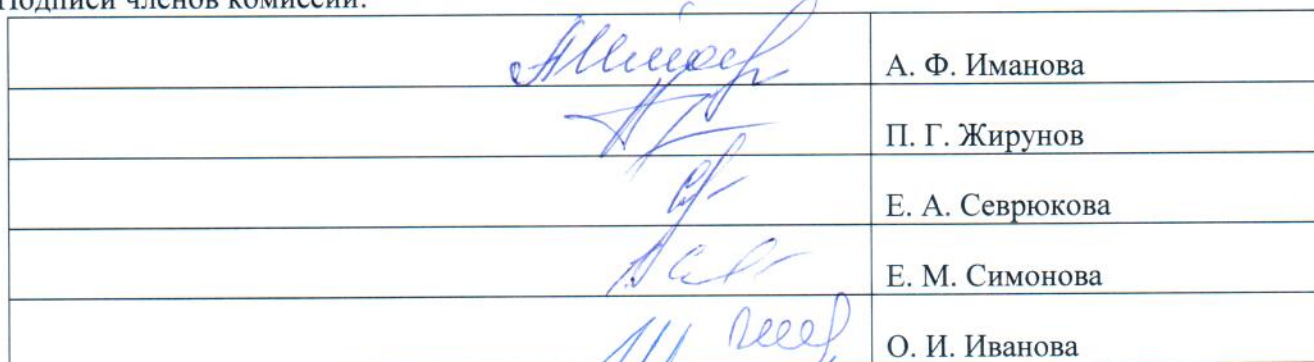 Подписи членов комиссии:
А. Ф. Иманова
П. Г. Жирунов
Е. А. Севрюкова
Е. М. Симонова
О. И. Иванова